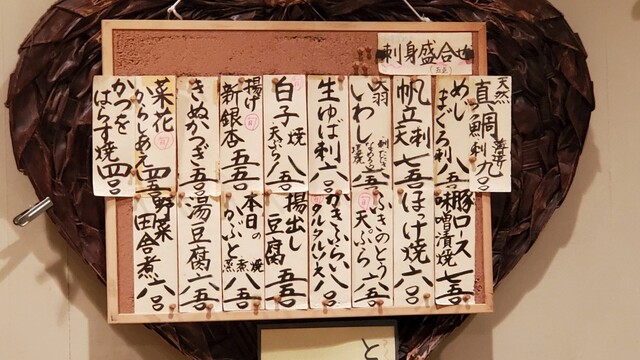 刺身盛合せ
天然
真鯛刺 九〇
めじまぐろ刺 八五
帆立刺 七五
大羽いわし
生ゆば刺 六〇
白子 焼 天ぷら 八五
揚げ新銀杏 五五
旬
きぬかつぎ 五〇
菜花からしあえ 四五
旬
かつをはらす焼 四〇
豚ロス味噌漬焼 七五
ほっけ焼 六〇
ふきのとう天ぷら 六五
旬
かきふらい 八〇
タルタルソース
揚出し豆腐 五五
本日のかぶと 焼 煮 八五
湯豆腐 八五
野菜田舎煮 六〇
と